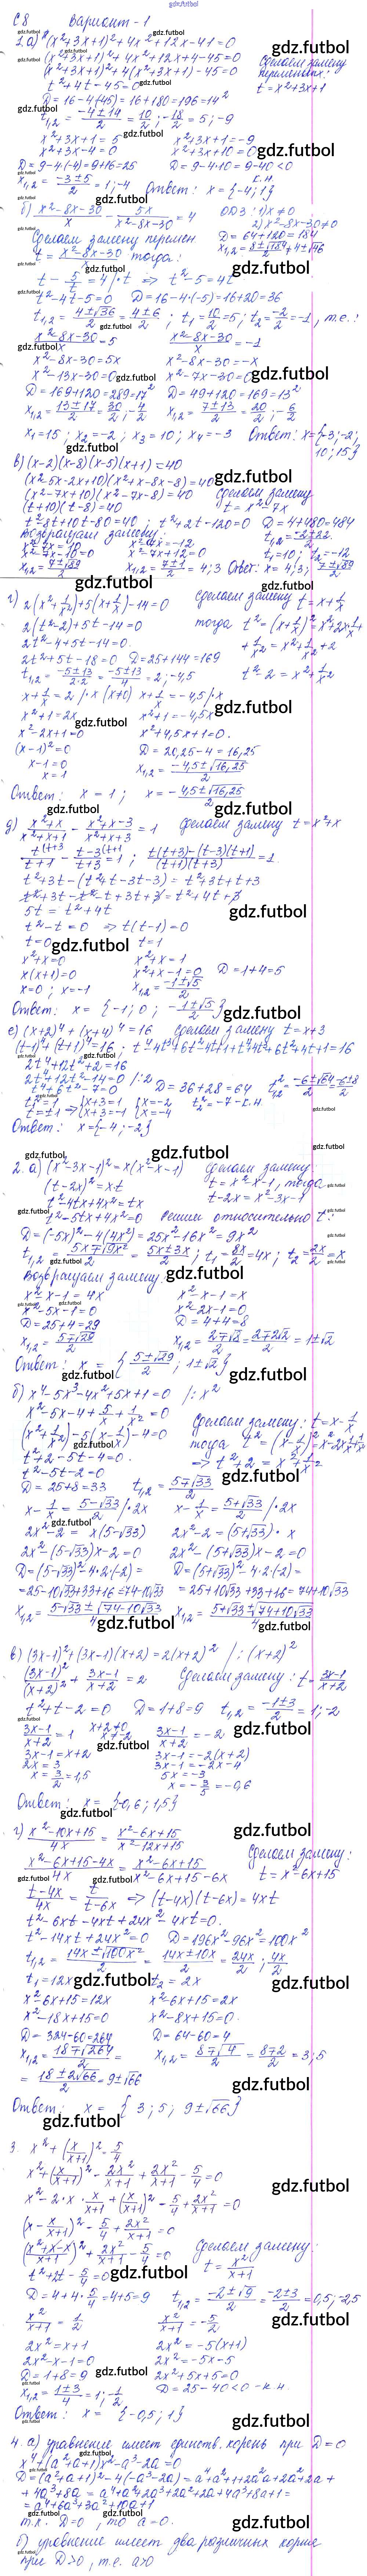 С8 Вариант - 1
1. а) (x²+3x+1)²+4x²+12x-41=0
(x²+3x+1)²+4x²+12x+4-45=0
(x²+3x+1)²+4(x²+3x+1)-45=0
Сделаем замену переменных:
t = x²+3x+1
t²+4t-45=0
D = 16-4(-45) = 16+180=196=14²
t₁,₂ = (-4±14)/2 = 10/2; -18/2 = 5; -9
x²+3x+1 = 5      x²+3x+1 = -9
x²+3x-4=0      x²+3x+10=0
D = 9-4(-4)=9+16=25      D = 9-4·10 = 9-40<0
x₁,₂ = (-3±5)/2 = 1; -4      к.н.
Ответ: x = {-4; 1}
б) (x²-8x-30)/x - 5x/(x²-8x-30) = 4      ОДЗ: 1) x ≠ 0
2) x²-8x-30≠0
Сделаем замену перемен.      D = 64+120 = 184
t = (x²-8x-30)/x тогда:      x₁,₂ = (8±√184)/2 = 4±√46
t - 5/t = 4 /·t ⇒ t²-5=4t
t²-4t-5=0      D=16-4·(-5)=16+20=36
t₁,₂ = (4±√36)/2 = (4±6)/2; t₁=10/2=5; t₂=-2/2=-1, т.е.:
(x²-8x-30)/x = 5      (x²-8x-30)/x = -1
x²-8x-30=5x      x²-8x-30=-x
x²-13x-30=0      x²-7x-30=0
D = 169+120=289=17²      D = 49+120=169=13²
x₁,₂ = (13±17)/2 = 30/2; -4/2      x₁,₂ = (7±13)/2 = 20/2; -6/2
x₁=15; x₂=-2; x₃=10; x₄=-3      Ответ: x={-3;-2;
10; 15}
в) (x-2)(x-8)(x-5)(x+1) = 40
(x²-5x-2x+10)(x²+x-8x-8)=40
(x²-7x+10)(x²-7x-8) = 40      Сделаем замену
(t+10)(t-8)=40      t = x²-7x
t²-8t+10t-80=40; t²+2t-120=0      D=4+480=484
Возвращаем замену:      t₁,₂ = (-2±22)/2
x²-7x=10      x²-7x=-12      t₁=10; t₂=-12
x²-7x-10=0      x²-7x+12=0
x₁,₂ = (7±√89)/2      x₁,₂ = (7±1)/2 = 4; 3      Ответ: x = 4; 3; (7±√89)/2
г) 2(x²+1/x²)+5(x+1/x)-14=0      Сделаем замену t = x+1/x
2(t²-2)+5t-14=0      тогда t² = (x+1/x)² = x²+2x·1/x+
2t²-4+5t-14=0      +1/x² = x²+1/x²+2
2t²+5t-18=0      D = 25+144=169
t₁,₂ = (-5±13)/(2·2) = (-5±13)/4 = 2; -4,5      t²-2 = x²+1/x²
x+1/x = 2 /·x (x≠0)      x+1/x = -4,5 /·x
x²+1=2x      x²+1=-4,5x
x²-2x+1=0      x²+4,5x+1=0.
(x-1)²=0      D = 20,25-4=16,25
x-1=0      x₁,₂ = (-4,5±√16,25)/2
x=1
Ответ: x = 1; x = (-4,5±√16,25)/2
д) (x²+x)/(x²+x+1) - (x²+x-3)/(x²+x+3) = 1      Сделаем замену t = x²+x
t/(t+1) - (t-3)/(t+3) = 1; (t(t+3)-(t-3)(t+1))/((t+1)(t+3)) = 1
t²+3t-(t²+t-3t-3) = t²+3t+t+3
t²+3t-t²-t+3t+3 = t²+4t+3
5t = t²+4t
t²-t=0 ⇒ t(t-1)=0
t=0      t=1
x²+x=0      x²+x=1
x(x+1)=0      x²+x-1=0      D=1+4=5
x=0; x=-1      x₁,₂ = (-1±√5)/2
Ответ: x = {-1; 0; (-1±√5)/2}
е) (x+2)⁴+(x+4)⁴=16      Сделаем замену t=x+3
(t-1)⁴+(t+1)⁴=16; t⁴-4t³+6t²-4t+1+t⁴+4t³+6t²+4t+1=16
2t⁴+12t²+2=16
2t⁴+12t²-14=0 /:2
t⁴+6t²-7=0      D = 36+28=64      t²₁,₂ = (-6±√64)/2 = (-6±8)/2
t²=1      {x+3=1      {x=-2      t²₂=-7 - к.н.
t=±1      {x+3=-1      {x=-4
Ответ: x={-4; -2}
2. а) (x²-3x-1)²=x(x²-x-1)      Сделаем замену:
(t-2x)²=x·t      t=x²-x-1, тогда
t²-4tx+4x²=tx      t-2x=x²-3x-1
t²-5tx+4x²=0      Решим относительно t:
D=(-5x)²-4(4x²)=25x²-16x²=9x²
t₁,₂ = (5x∓√9x²)/2 = (5x±3x)/2; t₁=8x/2=4x; t₂=2x/2=x
Возвращаем замену:
x²-x-1=4x      x²-x-1=x
x²-5x-1=0      x²-2x-1=0
D = 25+4=29      D = 4+4=8
x₁,₂ = (5∓√29)/2      x₁,₂ = (2∓√8)/2 = (2∓2√2)/2 = 1±√2
Ответ: x = {(5±√29)/2; 1±√2}
б) x⁴-5x³-4x²+5x+1=0 /:x²
x²-5x-4+5/x+1/x²=0      Сделаем замену: t = x-1/x
(x²+1/x²)-5(x-1/x)-4=0      тогда t²=(x-1/x)²=x²-2x·1/x+1/x²
t²+2-5t-4=0.      ⇒ t²+2=x²+1/x²
t²-5t-2=0
D = 25+8=33      t₁,₂ = (5∓√33)/2
x-1/x = (5-√33)/2 /·2x      x-1/x = (5+√33)/2 /·2x
2x²-2 = x(5-√33)      2x²-2 = (5+√33)·x
2x²-(5-√33)x-2=0      2x²-(5+√33)x-2=0
D=(5-√33)²-4·2·(-2)=      D=(5+√33)²-4·2·(-2)=
=25-10√33+33+16=74-10√33      =25+10√33+33+16=74+10√33
x₁,₂ = (5-√33±√(74-10√33))/4      x₁,₂ = (5+√33±√(74+10√33))/4
в) (3x-1)²+(3x-1)(x+2)=2(x+2)² /:(x+2)²
(3x-1)²/(x+2)² + (3x-1)/(x+2) = 2      Сделаем замену: t=(3x-1)/(x+2)
t²+t-2=0      D=1+8=9      t₁,₂ = (-1±3)/2 = 1; -2
(3x-1)/(x+2) = 1      x+2≠0      (3x-1)/(x+2) = -2
x≠-2
3x-1=x+2      3x-1=-2(x+2)
2x=3      3x-1=-2x-4
x=3/2=1,5      5x=-3
x=-3/5=-0,6
Ответ: x = {-0,6; 1,5}
г) (x²-10x+15)/4x = (x²-6x+15)/(x²-12x+15)
(x²-6x+15-4x)/4x = (x²-6x+15)/(x²-6x+15-6x)      Сделаем замену:
t = x²-6x+15
(t-4x)/4x = t/(t-6x) ⇒ (t-4x)(t-6x)=4xt
t²-6xt-4xt+24x²-4xt=0.
t²-14xt+24x²=0      D=196x²-96x²=100x²
t₁,₂ = (14x±√100x²)/2 = (14x±10x)/2 = 24x/2; 4x/2
t₁=12x      t₂=2x
x²-6x+15=12x      x²-6x+15=2x
x²-18x+15=0      x²-8x+15=0.
D=324-60=264      D=64-60=4
x₁,₂ = (18∓√264)/2 =      x₁,₂ = (8∓√4)/2 = (8∓2)/2 = 3; 5
= (18±2√66)/2 = 9±√66
Ответ: x = {3; 5; 9±√66}
3. x²+(x/(x+1))²=5/4
x²+(x/(x+1))²-2x²/(x+1)+2x²/(x+1)-5/4=0
x²-2·x·x/(x+1)+(x/(x+1))²-5/4+2x²/(x+1)=0
(x-x/(x+1))²-5/4+2x²/(x+1)=0
((x²+x-x)/(x+1))²+2x²/(x+1)-5/4=0      Сделаем замену:
t²+2t-5/4=0      t=x²/(x+1)
D=4+4·5/4=4+5=9      t₁,₂ = (-2±√9)/2 = (-2±3)/2 = 0,5; -2,5
x²/(x+1) = 1/2      x²/(x+1) = -5/2
2x²=x+1      2x²=-5(x+1)
2x²-x-1=0      2x²=-5x-5
D=1+8=9      2x²+5x+5=0
x₁,₂ = (1±3)/4 = 1; -1/2      D=25-40<0 - к.н.
Ответ: x = {-0,5; 1}
4. а) уравнение имеет единств. корень при D=0
x⁴+(a²+a+1)x²-a³-2a=0
D=(a²+a+1)²-4(-a³-2a)=a⁴+a²+1+2a³+2a²+2a+
+4a³+8a = a⁴+a²+2a³+2a²+2a+4a³+8a+1=
=a⁴+6a³+3a²+10a+1
т.к. D=0, то a=0.
б) уравнение имеет два различных корня
при D>0, т.е. a>0
gdz.futbol